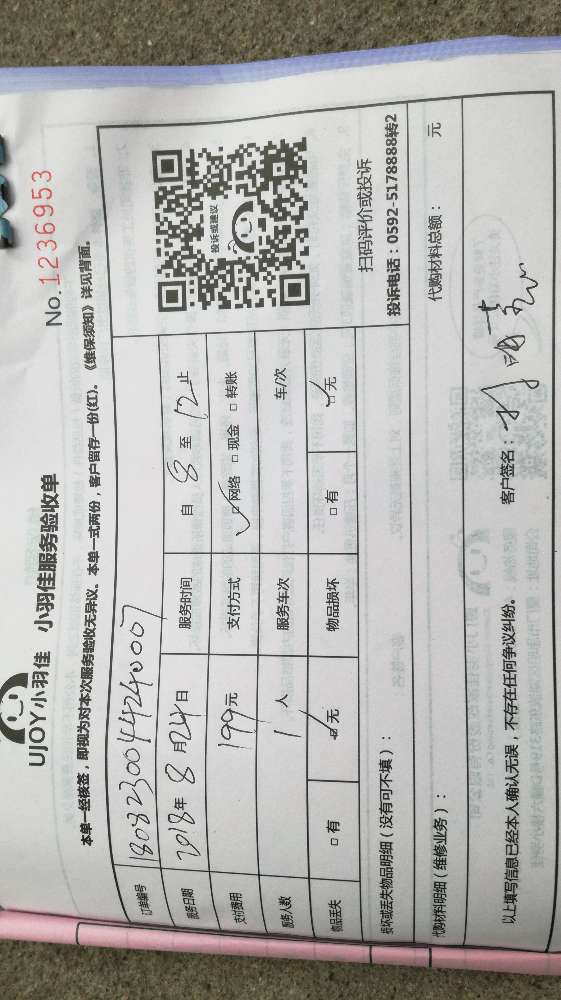 UJOY小羽佳 小羽佳服务验收单
No.1236953
本单一经核签，即视为对本次服务验收无异议。本单一式两份，客户留存一份(红)。《维保须知》详见背面。
订单编号 1808230044240007
服务日期 2018年8月24日 服务时间 自 8 至 12 止
支付费用 199元 支付方式 ☑网络 □现金 □转账
服务人数 1 人 服务车次 车/次
物品丢失 □有 ☑无 物品损坏 □有 ☑无
投诉或建议
扫码评价或投诉
投诉电话：0592-5178888转2
损坏或丢失物品明细（没有可不填）：
代购材料明细（维修业务）： 代购材料总额： 元
以上填写信息已经本人确认无误，不存在任何争议纠纷。 客户签名：